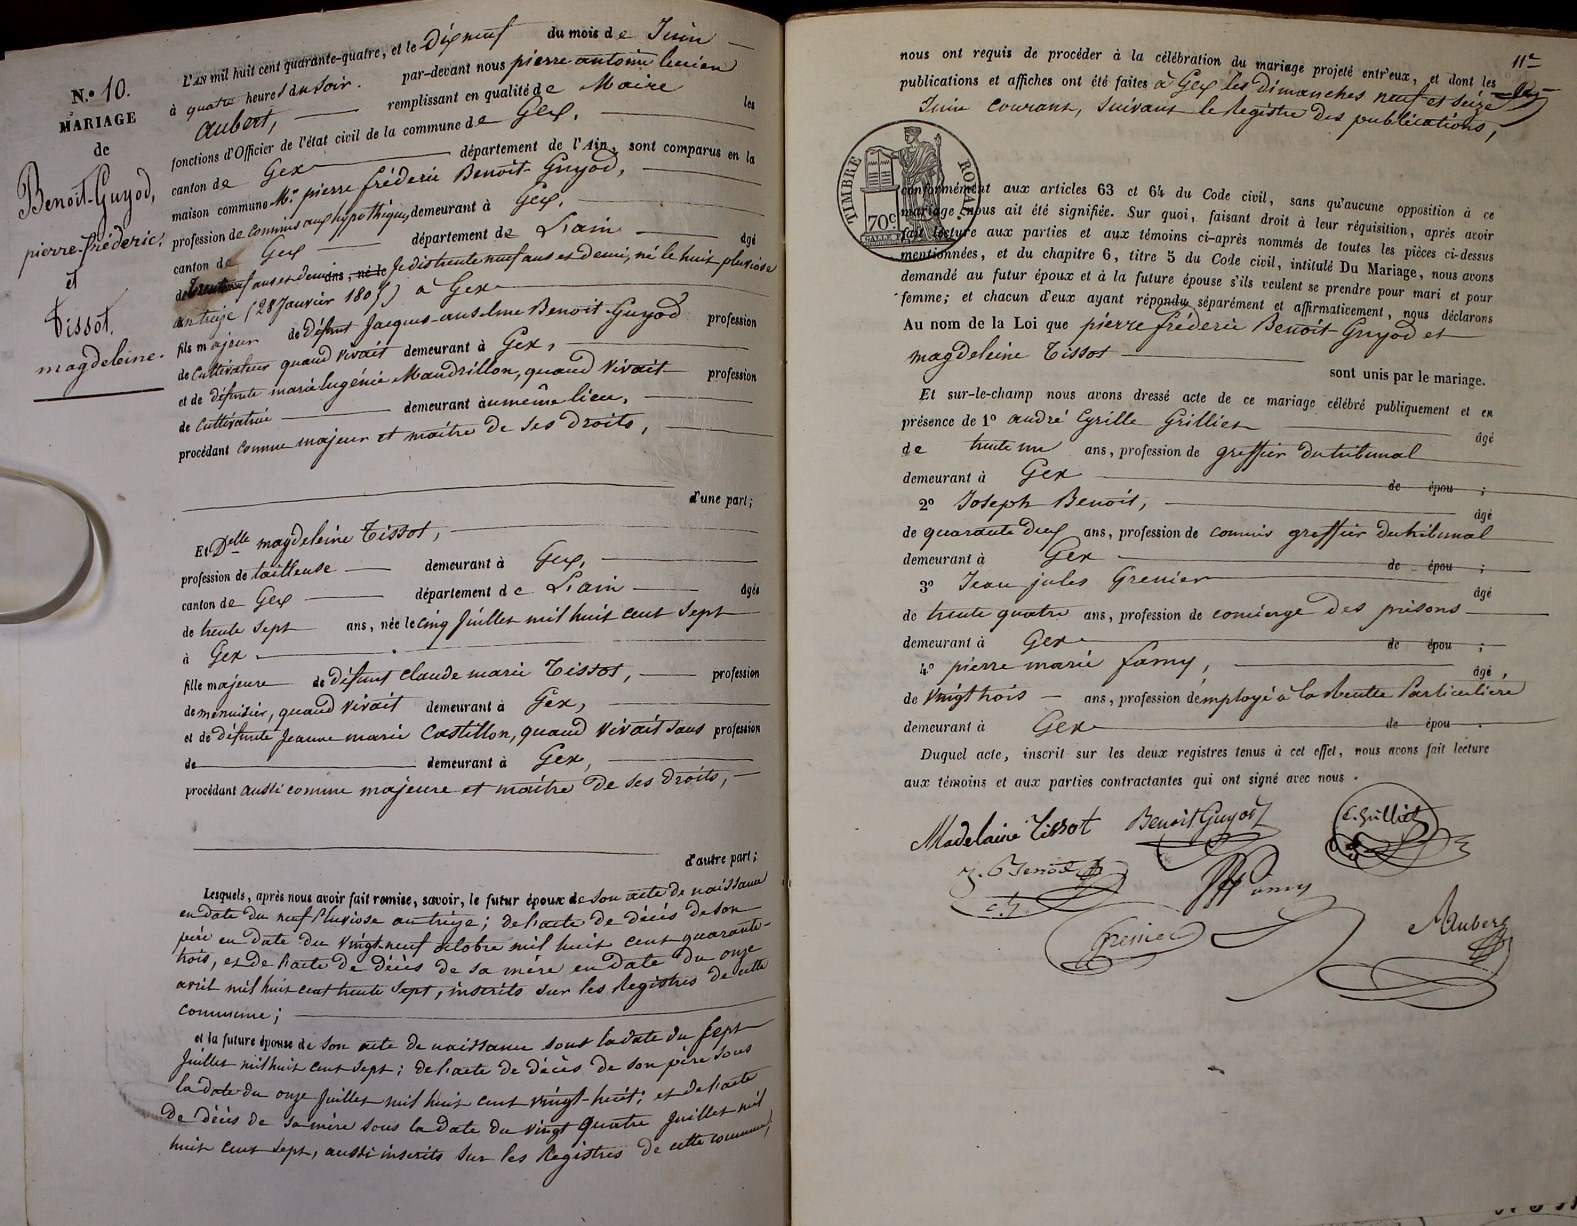 N.º 10.
MARIAGE
de
Benoît-Guyod,
pierre-fréderic.
et
Tissot.
magdeleine.
L'an mil huit cent quarante-quatre, et le Dix neuf du mois de Juin
à quatre heures du soir. par-devant nous pierre antoine lucien
Aubert, remplissant en qualité de Maire les
fonctions d'Officier de l'état civil de la commune de Gex,
canton de Gex département de l'Ain, sont comparus en la
maison commune Mr. pierre fréderic Benoît-Guyod,
profession de Commis aux hypothèques demeurant à Gex,
canton de Gex département de L'ain âgé
de ans, né le Je dis trente neuf ans et demi, né le huit pluviose
an treize (28 Janvier 1805) à Gex
fils majeur de défunt Jacques-anselme Benoît-Guyod profession
de Cultivateur quand vivait demeurant à Gex,
et de défunte marie Eugénie Mandrillon, quand vivait profession
de Cultivatrice demeurant au même lieu,
procédant comme majeur et maître de ses droits,
d'une part;
Et Delle magdeleine Tissot,
profession de tailleuse demeurant à Gex,
canton de Gex département de L'ain âgée
de trente sept ans, née le cinq Juillet mil huit cent sept
à Gex
fille majeure de défunt claude marie Tissot, profession
de menuisier, quand vivait demeurant à Gex,
et de défunte Jeanne marie Castillon, quand vivait sans profession
de demeurant à Gex,
procédant aussi comme majeure et maître de ses droits,
d'autre part;
Lesquels, après nous avoir fait remise, savoir, le futur époux de son acte de naissance
en date du neuf Pluviose an treize; de l'acte de décès de son
père en date du vingt-neuf octobre mil huit cent quarante-
trois, et de l'acte de décès de sa mère en date du onze
avril mil huit cent trente sept, inscrits sur les Registres de cette
commune;
et la future épouse de son acte de naissance sous la date du sept
Juillet mil huit cent sept; de l'acte de décès de son père sous
la date du onze Juillet mil huit cent vingt-huit; et de l'acte
de décès de sa mère sous la date du vingt quatre Juillet mil
huit cent sept, aussi inscrits sur les Registres de cette commune,
11e
nous ont requis de procéder à la célébration du mariage projeté entr'eux, et dont les
publications et affiches ont été faites à Gex les dimanches neuf et seize
Juin courant, suivant le Registre des publications,
TIMBRE ROYAL
70c
conformément aux articles 63 et 64 du Code civil, sans qu'aucune opposition à ce
mariage nous ait été signifiée. Sur quoi, faisant droit à leur réquisition, après avoir
fait lecture aux parties et aux témoins ci-après nommés de toutes les pièces ci-dessus
mentionnées, et du chapitre 6, titre 5 du Code civil, intitulé Du Mariage, nous avons
demandé au futur époux et à la future épouse s'ils veulent se prendre pour mari et pour
femme; et chacun d'eux ayant répondu séparément et affirmativement, nous déclarons
Au nom de la Loi que pierre fréderic Benoit Guyod et
magdeleine Tissot
sont unis par le mariage.
Et sur-le-champ nous avons dressé acte de ce mariage célébré publiquement et en
présence de 1º andré Cyrille Grilliet âgé
de trente un ans, profession de greffier du tribunal
demeurant à Gex de épou ;
2º Joseph Benoit, âgé
de quarante deux ans, profession de commis greffier du tribunal
demeurant à Gex de épou ;
3º Jean jules Grenier âgé
de trente quatre ans, profession de concierge des prisons
demeurant à Gex de épou ;
4º pierre marie famy, âgé,
de vingt trois ans, profession d'employé à la Recette Particulière
demeurant à Gex de épou .
Duquel acte, inscrit sur les deux registres tenus à cet effet, nous avons fait lecture
aux témoins et aux parties contractantes qui ont signé avec nous .
Madelaine Tissot Benoit Guyod C. Grilliet
J. Benoit famy
Grenier Aubert